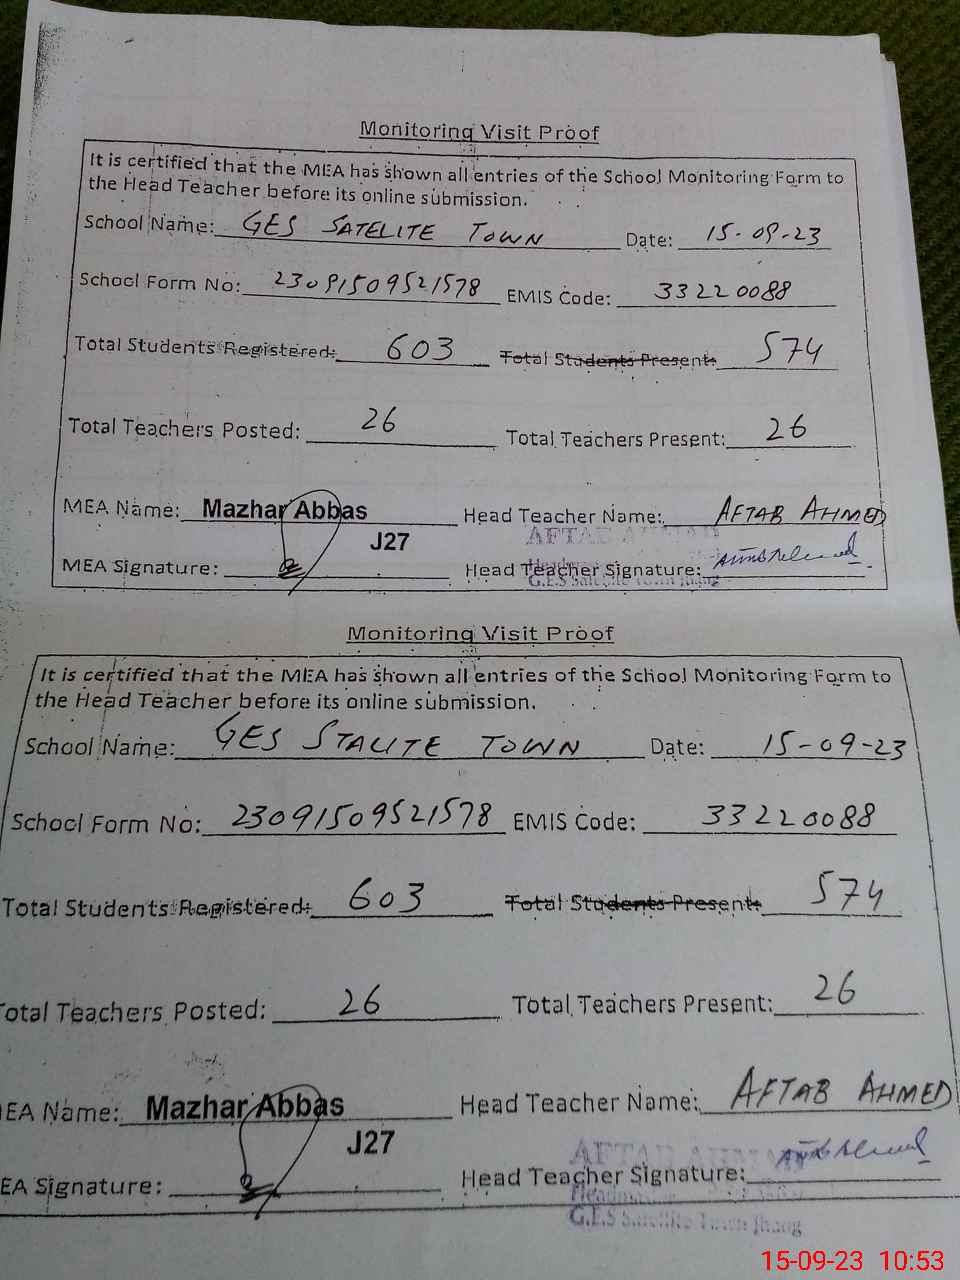 Monitoring Visit Proof
It is certified that the MEA has shown all entries of the School Monitoring Form to
the Head Teacher before its online submission.
School Name: GES SATELITE TOWN Date: 15-09-23
School Form No: 23091509521578 EMIS Code: 33220088
Total Students Registered: 603 Total Students Present: 574
Total Teachers Posted: 26 Total Teachers Present: 26
MEA Name: Mazhar Abbas Head Teacher Name: AFTAB AHMED
J27 AFTAB AHMAD
MEA Signature: Head Teacher Signature:
G.E.S Satellite Town Jhang
Monitoring Visit Proof
It is certified that the MEA has shown all entries of the School Monitoring Form to
the Head Teacher before its online submission.
School Name: GES STALITE TOWN Date: 15-09-23
School Form No: 23091509521578 EMIS Code: 33220088
Total Students Registered: 603 Total Students Present: 574
Total Teachers Posted: 26 Total Teachers Present: 26
EA Name: Mazhar Abbas Head Teacher Name: AFTAB AHMED
J27 AFTAB AHMAD
EA Signature: Head Teacher Signature:
Headmaster
G.E.S Satellite Town Jhang
15-09-23 10:53